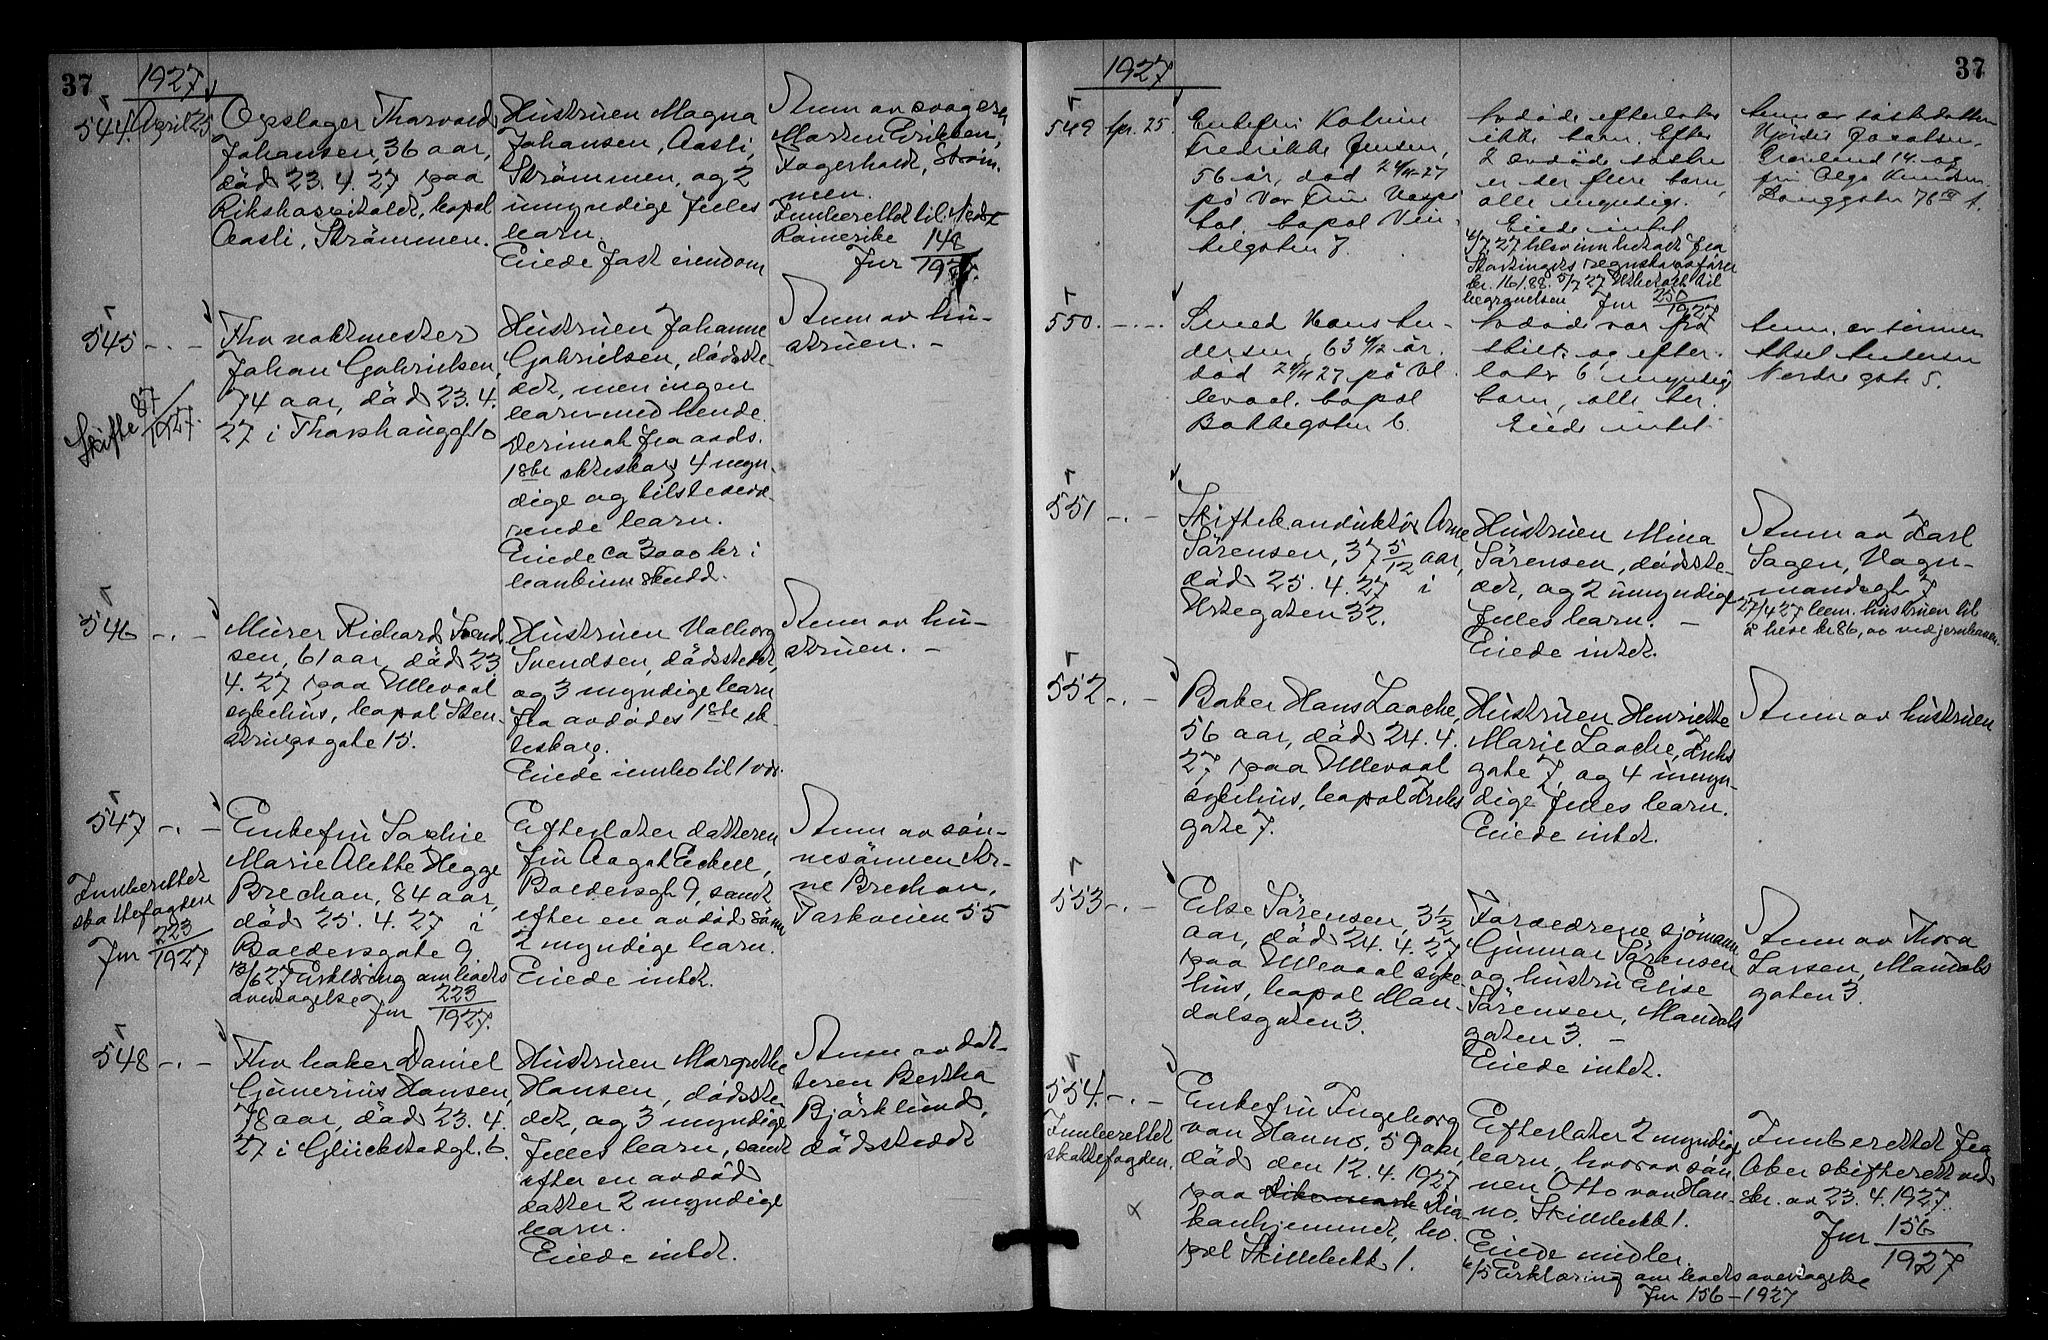 37
1927
544. April 25
Opslager Thorvald
Johansen, 36 aar,
död 23. 4. 27 paa
Rikshospitalet, bopæl
Aasli, Strömmen.
Hustruen Magna
Johansen, Aasli,
Strömmen, og 2
umyndige fælles
barn.
Eiede fast eiendom
Anm av svogeren
Morten Eriksen,
Fagerholt, Ström-
men.
Innberettet til Nedre
Romerike
Jnr 148/1927.
545 -.-
Skifte 87/1927.
Fhv vaktmester
Johan Gabrielsen,
74 aar, död 23. 4.
27 i Thorshauggt 10
Hustruen Johanne
Gabrielsen, dödsste-
det, men ingen
barn med hende.
Derimot fra avds.
1ste ekteskap 4 myn-
dige og tilstedevæ-
rende barn.
Eiede ca 3000 kr i
bankinnskudd.
Anm av hu-
struen. -
546 -.-
Murer Richard Svend-
sen, 61 aar, död 23.
4. 27 paa Ullevaal
sykehus, bopæl Sten-
strupsgate 15.
Hustruen Valborg
Svendsen, dödsstedet,
og 3 myndige barn
fra avdödes 1ste ek-
teskap.
Eiede innbo til 1 vær.
Anm av hu-
struen. -
547 -.-
Innberettet
skattefogden
Jnr 223/1927
Enkefru Sophie
Marie Alette Hegge
Brechan, 84 aar,
död 25. 4. 27 i
Baldersgate 9
13/6 27 Erklæring om boets
overtagelse
Jnr 223/1927.
Efterlater datteren
fru Aagot Eckell,
Baldersgt 9, samt
efter en avdöd sönn
2 myndige barn.
Eiede intet.
Anm av sön-
nesönnen Ar-
ne Brechan,
Parkveien 55
548 -.-
Fhv baker Daniel
Gunerius Hansen,
78 aar, död 23. 4.
27 i Glückstadgt. 6.
Hustruen Margrethe
Hansen, dödsste-
det, og 3 myndige
fælles barn, samt
efter en avdöd
datter 2 myndige
barn.
Eiede intet.
Anm av dat-
teren Bertha
Björklund,
dödsstedet
37
1927
549 Apr. 25.
Enkefru Katrine
Fredrikke Jensen,
56 år, död 24/4-27
på Vor Frue Hospi
tal. bopæl Vin-
kelgaten 7.
Avdöde efterlater
ikke barn. Efter
2 avdöde söstre
er der flere barn,
alle myndige.
Eiede intet
4/7 27 blev innbetalt fra
Stortingets regnskapsförer
kr. 161.88. 5/7 27 Utbetalt til
begravelsen Jnr 250/1927
Anm av sösterdatteren
Hjördis Jacobsen,
Grönland 14 og
fru Olga Knudsen
Langgaten 76 III
550. -.-
Smed Hans An-
dersen, 63 4/12 år.
död 24/4 27 på Ul-
levaal. bopæl
Bakkegaten 6.
Avdöde var fra
skilt og efter-
later 6 myndige
barn, alle her.
Eiede intet
Anm. av sönnen
Aksel Andersen
Nordregate 5.
551 -.-
Skiftekonduktör Arne
Sörensen, 37 5/12 aar,
död 25. 4. 27 i
Urtegaten 32.
Hustruen Mina
Sörensen, dödsste-
det, og 2 umyndige
fælles barn. -
Eiede intet.
Anm av Karl
Sagen, Vogn-
mandsgt 7
27/4 27 bem. hustruen til
å heve kr 86,00 ved jernbanen.
552 -.-
Baker Hans Laache,
56 aar, död 24. 4.
27 paa Ullevaal
sykehus, bopæl Friis
gate 7.
Hustruen Henriette
Marie Laache, Friis
gate 7, og 4 umyn-
dige fælles barn.
Eiede intet.
Anm av hustruen
553 -.-
Else Sörensen, 3 1/2
aar, död 24. 4. 27
paa Ullevaal syke-
hus, bopæl Man-
dalsgaten 3.
Foreldrene sjömann
Gunnar Sörensen
og hustru Elise
Sörensen, Mandals
gaten 3. -
Eiede intet.
Anm av Thora
Larsen, Mandals
gaten 3.
554. -.-
Innberettet
skattefogden.
x
Enkefru Ingeborg
von Hanno, 59 aar,
död den 12. 4. 1927
paa Dikemark Dia-
konhjemmet, bo-
pæl Skillebekk 1.
Efterlater 2 myndige
barn, hvorav sön-
nen Otto von Han-
no, Skillebekk 1.
Eiede midler.
6/5 Erklæring om boets overtagelse
Jnr 156-1927
Innberettet fra
Aker skifterett ved
skr. av 23. 4. 1927.
Jnr 156/1927